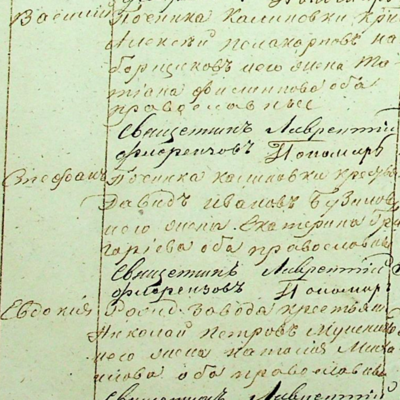 Василий Поселка Калиновки кр
Алексей Поликарповъ На
борщиковъ и его жена Та
тиана Филиппова оба
православные
Священникъ Лаврентий
Флоренсовъ Пономарь
Стефанъ Поселка Калиновки кресть
Давидъ Ивановъ
и его жена Екатерина Гри
гориева оба православные
Священникъ Лаврентий
Флоренсовъ Пономарь
Евдокия Завода крестьян
Николай Петровъ
и его жена Наталия Миха
илова оба православные
Священникъ Лаврентий